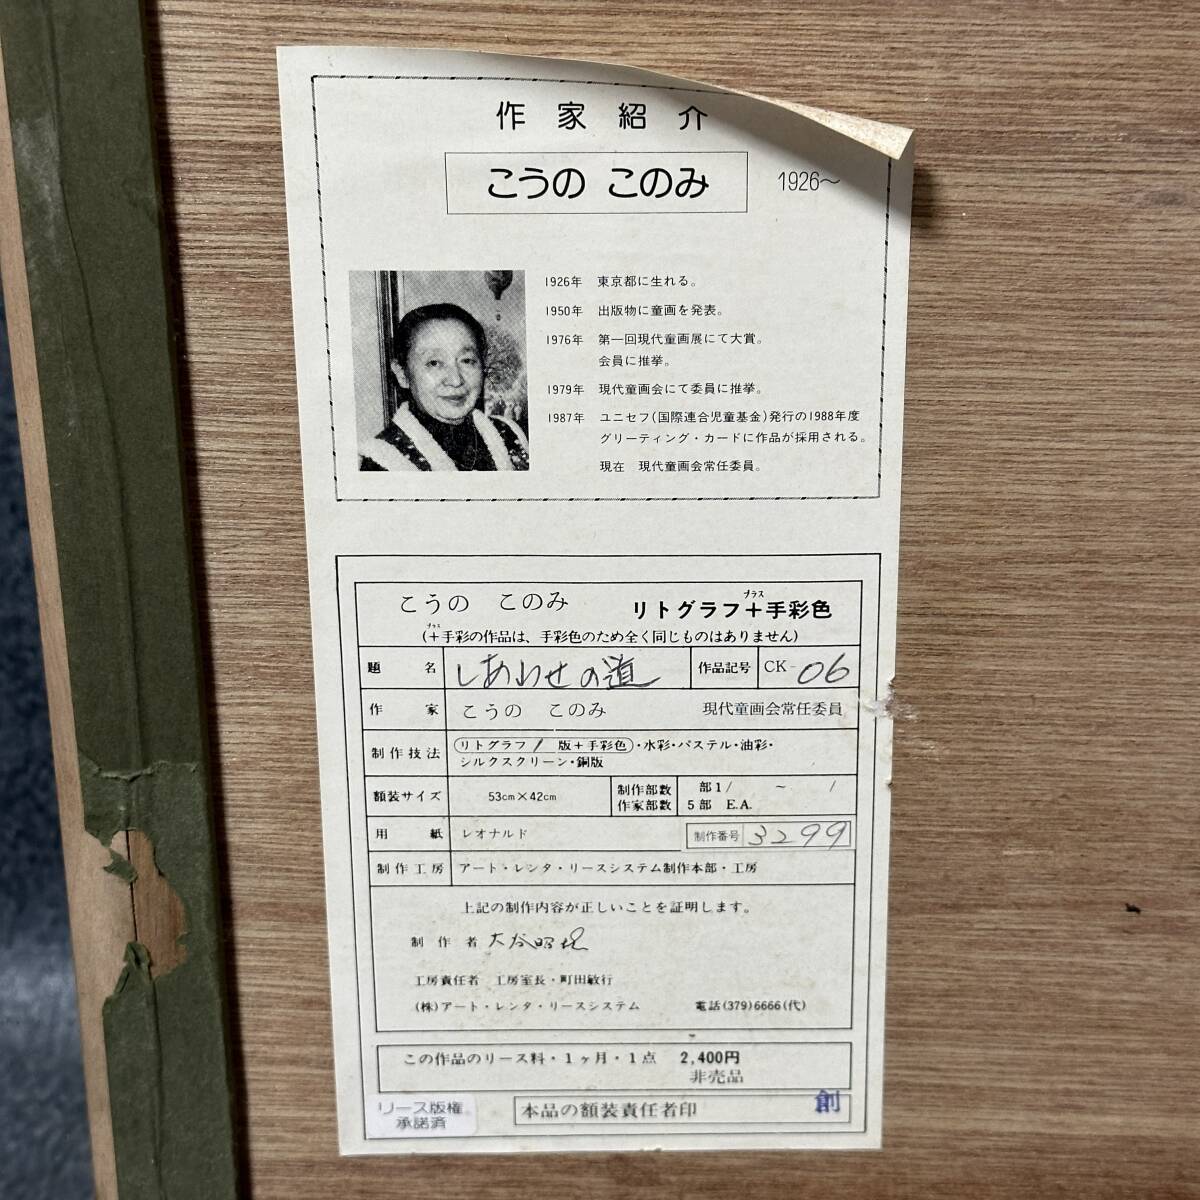 作家紹介
こうの このみ 1926〜
1926年 東京都に生れる。
1950年 出版物に童画を発表。
1976年 第一回現代童画展にて大賞。
会員に推挙。
1979年 現代童画会にて委員に推挙。
1987年 ユニセフ(国際連合児童基金)発行の1988年度
グリーティング・カードに作品が採用される。
現在 現代童画会常任委員。
こうの このみ リトグラフ+プラス手彩色
(+プラス手彩の作品は、手彩色のため全く同じものはありません)
題名 しあわせの道 作品記号 CK-06
作家 こうの このみ 現代童画会常任委員
制作技法 リトグラフ1版+手彩色・水彩・パステル・油彩・
シルクスクリーン・銅版
額装サイズ 53cm×42cm 制作部数 部1/ 〜 /
作家部数 5部 E.A.
用紙 レオナルド 制作番号 3299
制作工房 アート・レンタ・リースシステム制作本部・工房
上記の制作内容が正しいことを証明します。
制作者
工房責任者 工房室長・町田敏行
(株)アート・レンタ・リースシステム 電話(379)6666(代)
この作品のリース料・1ヶ月・1点 2,400円
非売品
リース版権
承諾済
本品の額装責任者印 創